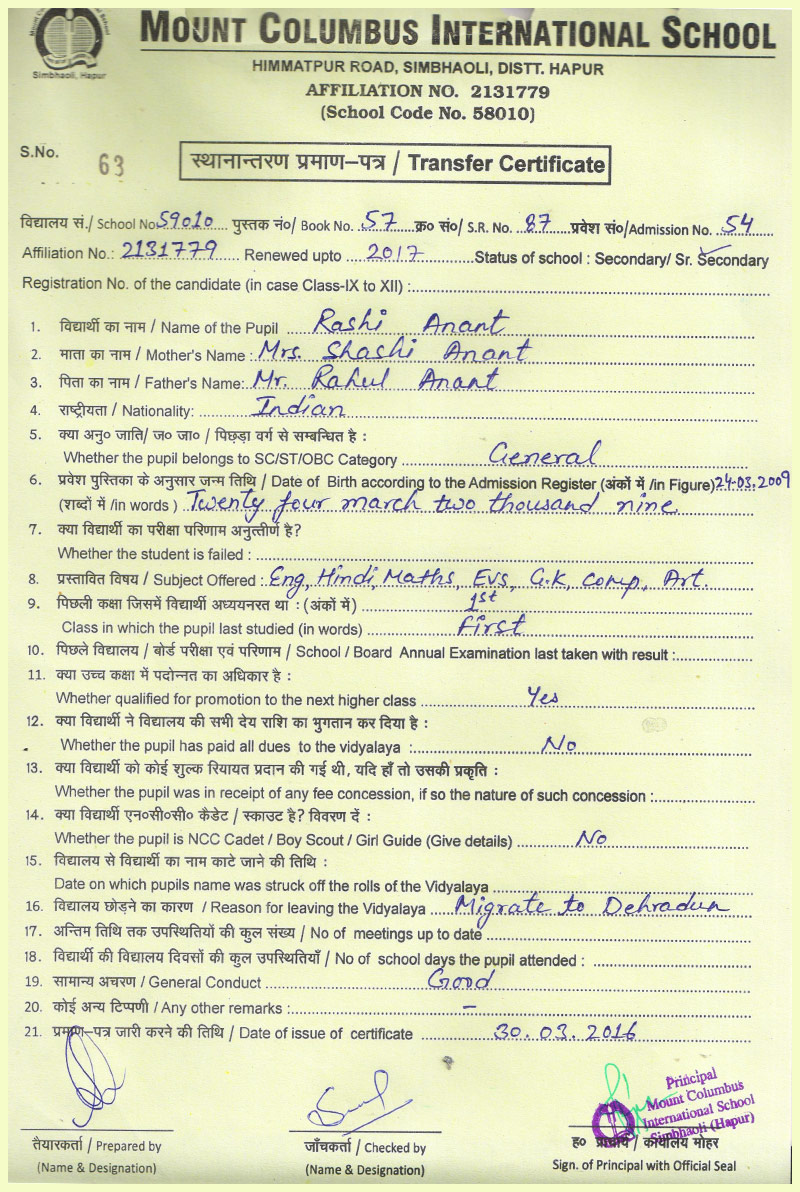 Simbhaoli, Hapur
MOUNT COLUMBUS INTERNATIONAL SCHOOL
HIMMATPUR ROAD, SIMBHAOLI, DISTT. HAPUR
AFFILIATION NO. 2131779
(School Code No. 58010)
S.No. 63
स्थानान्तरण प्रमाण–पत्र / Transfer Certificate
विद्यालय सं./ School No. 59010 पुस्तक नं०/ Book No. 57 क्र० सं०/ S.R. No. 87 प्रवेश सं०/Admission No. 54
Affiliation No.: 2131779 Renewed upto 2017 Status of school : Secondary/ Sr. Secondary
Registration No. of the candidate (in case Class-IX to XII) :
1. विद्यार्थी का नाम / Name of the Pupil Rashi Anant
2. माता का नाम / Mother's Name : Mrs. Shashi Anant
3. पिता का नाम / Father's Name: Mr. Rahul Anant
4. राष्ट्रीयता / Nationality: Indian
5. क्या अनु० जाति/ ज० जा० / पिछड़ा वर्ग से सम्बन्धित है :
Whether the pupil belongs to SC/ST/OBC Category General
6. प्रवेश पुस्तिका के अनुसार जन्म तिथि / Date of Birth according to the Admission Register (अंकों में /in Figure) 24.03.2009
(शब्दों में /in words ) Twenty four march two thousand nine
7. क्या विद्यार्थी का परीक्षा परिणाम अनुत्तीर्ण है?
Whether the student is failed :
8. प्रस्तावित विषय / Subject Offered : Eng, Hindi, Maths, Evs, G.K, Comp, Art.
9. पिछली कक्षा जिसमें विद्यार्थी अध्ययनरत था : (अंकों में) 1st
Class in which the pupil last studied (in words) first
10. पिछले विद्यालय / बोर्ड परीक्षा एवं परिणाम / School / Board Annual Examination last taken with result :
11. क्या उच्च कक्षा में पदोन्नत का अधिकार है :
Whether qualified for promotion to the next higher class Yes
12. क्या विद्यार्थी ने विद्यालय की सभी देय राशि का भुगतान कर दिया है :
Whether the pupil has paid all dues to the vidyalaya : No
13. क्या विद्यार्थी को कोई शुल्क रियायत प्रदान की गई थी, यदि हाँ तो उसकी प्रकृति :
Whether the pupil was in receipt of any fee concession, if so the nature of such concession :
14. क्या विद्यार्थी एन०सी०सी० कैडेट / स्काउट है? विवरण दें :
Whether the pupil is NCC Cadet / Boy Scout / Girl Guide (Give details) No
15. विद्यालय से विद्यार्थी का नाम काटे जाने की तिथि :
Date on which pupils name was struck off the rolls of the Vidyalaya
16. विद्यालय छोड़ने का कारण / Reason for leaving the Vidyalaya Migrate to Dehradun
17. अन्तिम तिथि तक उपस्थितियों की कुल संख्य / No of meetings up to date
18. विद्यार्थी की विद्यालय दिवसों की कुल उपस्थितियाँ / No of school days the pupil attended :
19. सामान्य अचरण / General Conduct Good
20. कोई अन्य टिप्पणी / Any other remarks : –
21. प्रमाण–पत्र जारी करने की तिथि / Date of issue of certificate 30.03.2016
Principal
Mount Columbus
International School
Simbhaoli (Hapur)
तैयारकर्ता / Prepared by जाँचकर्ता / Checked by ह० प्राचार्य / कार्यालय मोहर
(Name & Designation) (Name & Designation) Sign. of Principal with Official Seal